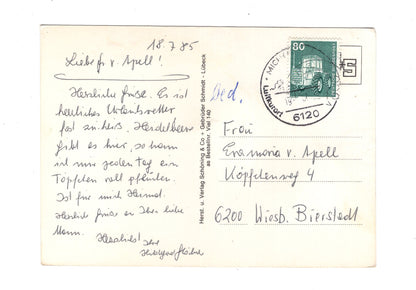 18.7.85
Liebe Fr. v. Apell!
Herzliche Grüße. Es ist
herrliches Urlaubswetter
fast zu heiß. Heidelbeeren
gibt es hier, so kann
ich mir jeden Tag ein
Töpfchen voll pflücken.
Ist für mich Heimat.
Herzliche Grüße an Ihren lieben
Mann.
Herzlichst Ihre
Herst. u. Verlag Schöning & Co + Gebrüder Schmidt - Lübeck
Ged.
80
Luftkurort
6120
Frau
Evamaria v. Apell
Köpfchenweg 4
6200 Wiesb. Bierstadt